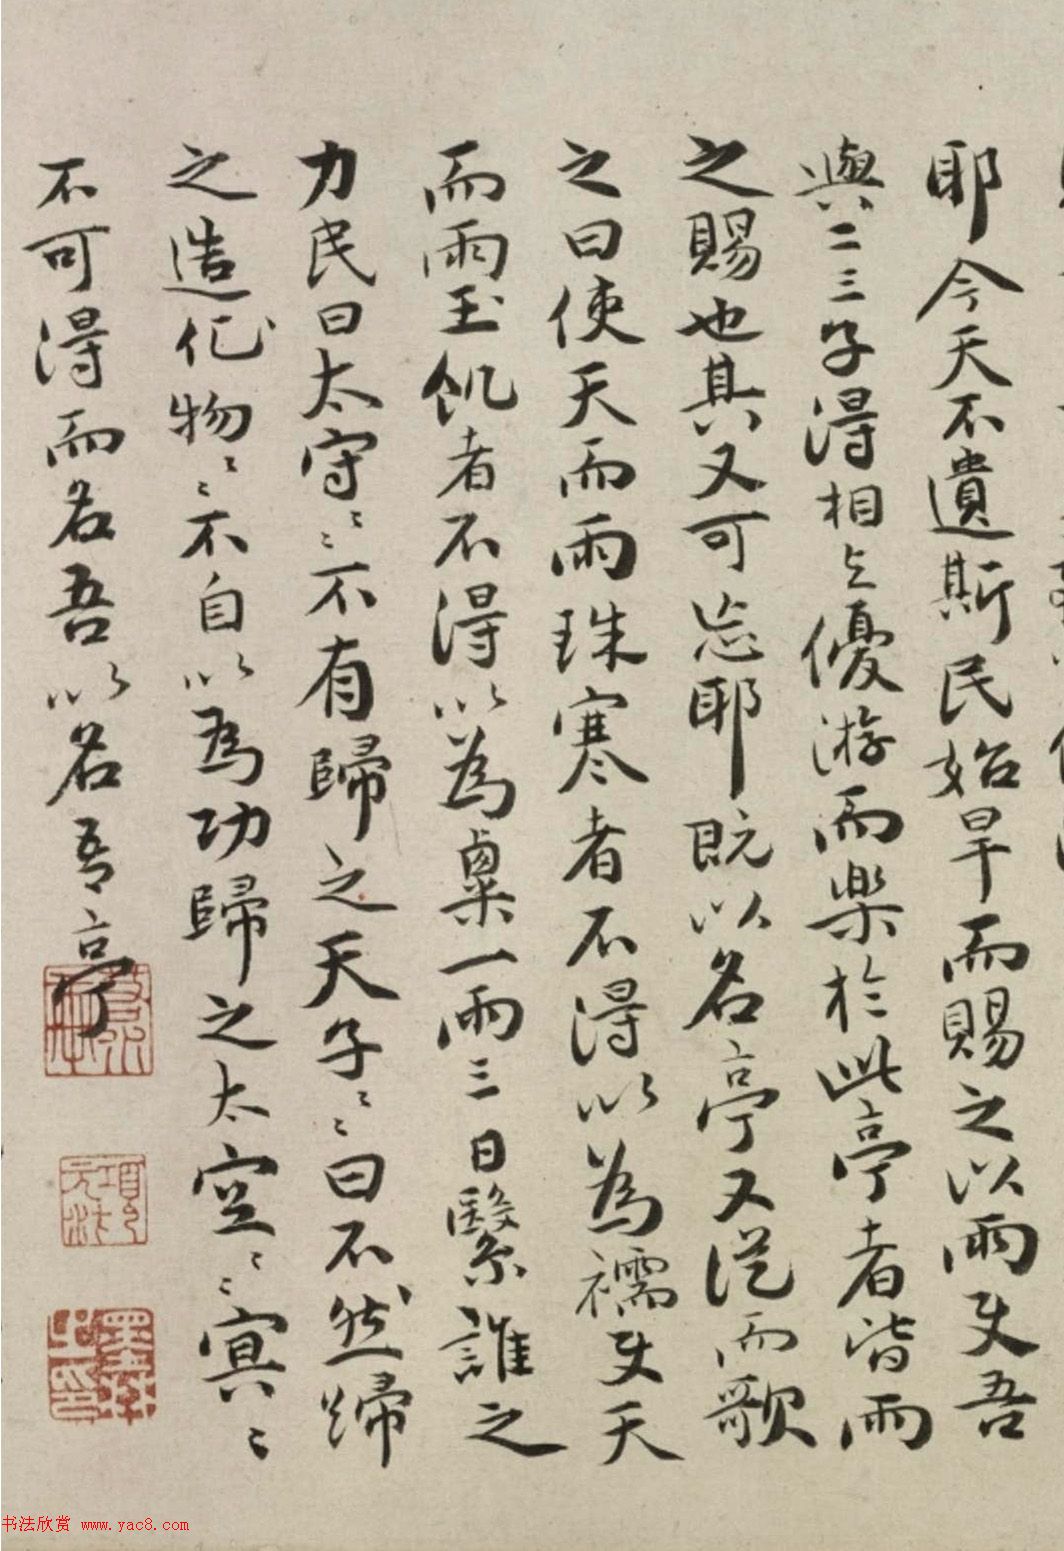 耶今天不遺斯民始旱而賜之以雨使吾
與二三子得相与優游而樂於此亭者皆雨
之賜也其又可忘耶既以名亭又從而歌
之曰使天而雨珠寒者不得以為襦使天
而雨玉飢者不得以為粟一雨三日繄誰之
力民曰太守〻〻不有歸之天子〻〻曰不然歸
之造化物〻〻不自以為功歸之太空〻〻冥〻
不可得而名吾以名吾亭
項元汴印
书法欣赏 www.yac8.com